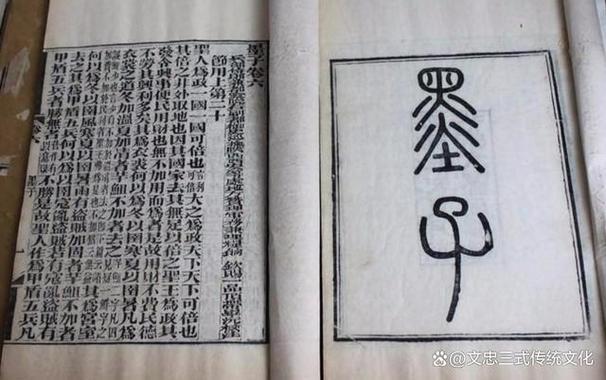 墨子
墨子卷六
節用上第二十
聖人爲政一國一國可倍也大之爲政天下天下可倍也
其倍之非外取地也因其國家去其無足以倍之聖王爲政其
發令興事使民用財也無不加用而爲者是故用財不費民德
不勞其興利多矣其爲衣裘何以爲冬以圉寒夏以圉暑凡爲
衣裳之道冬加溫夏加凊者芊䱉不加者去之其爲宮室
何以爲冬以圉風寒夏以圉暑雨有盜賊加固者芊䱉不加者
去之其爲甲盾五兵何以爲以圉寇亂盜賊若有寇亂盜賊有
甲盾五兵者勝無者不勝是故聖人作爲甲盾五兵凡
墨子
@文忠三式传统文化